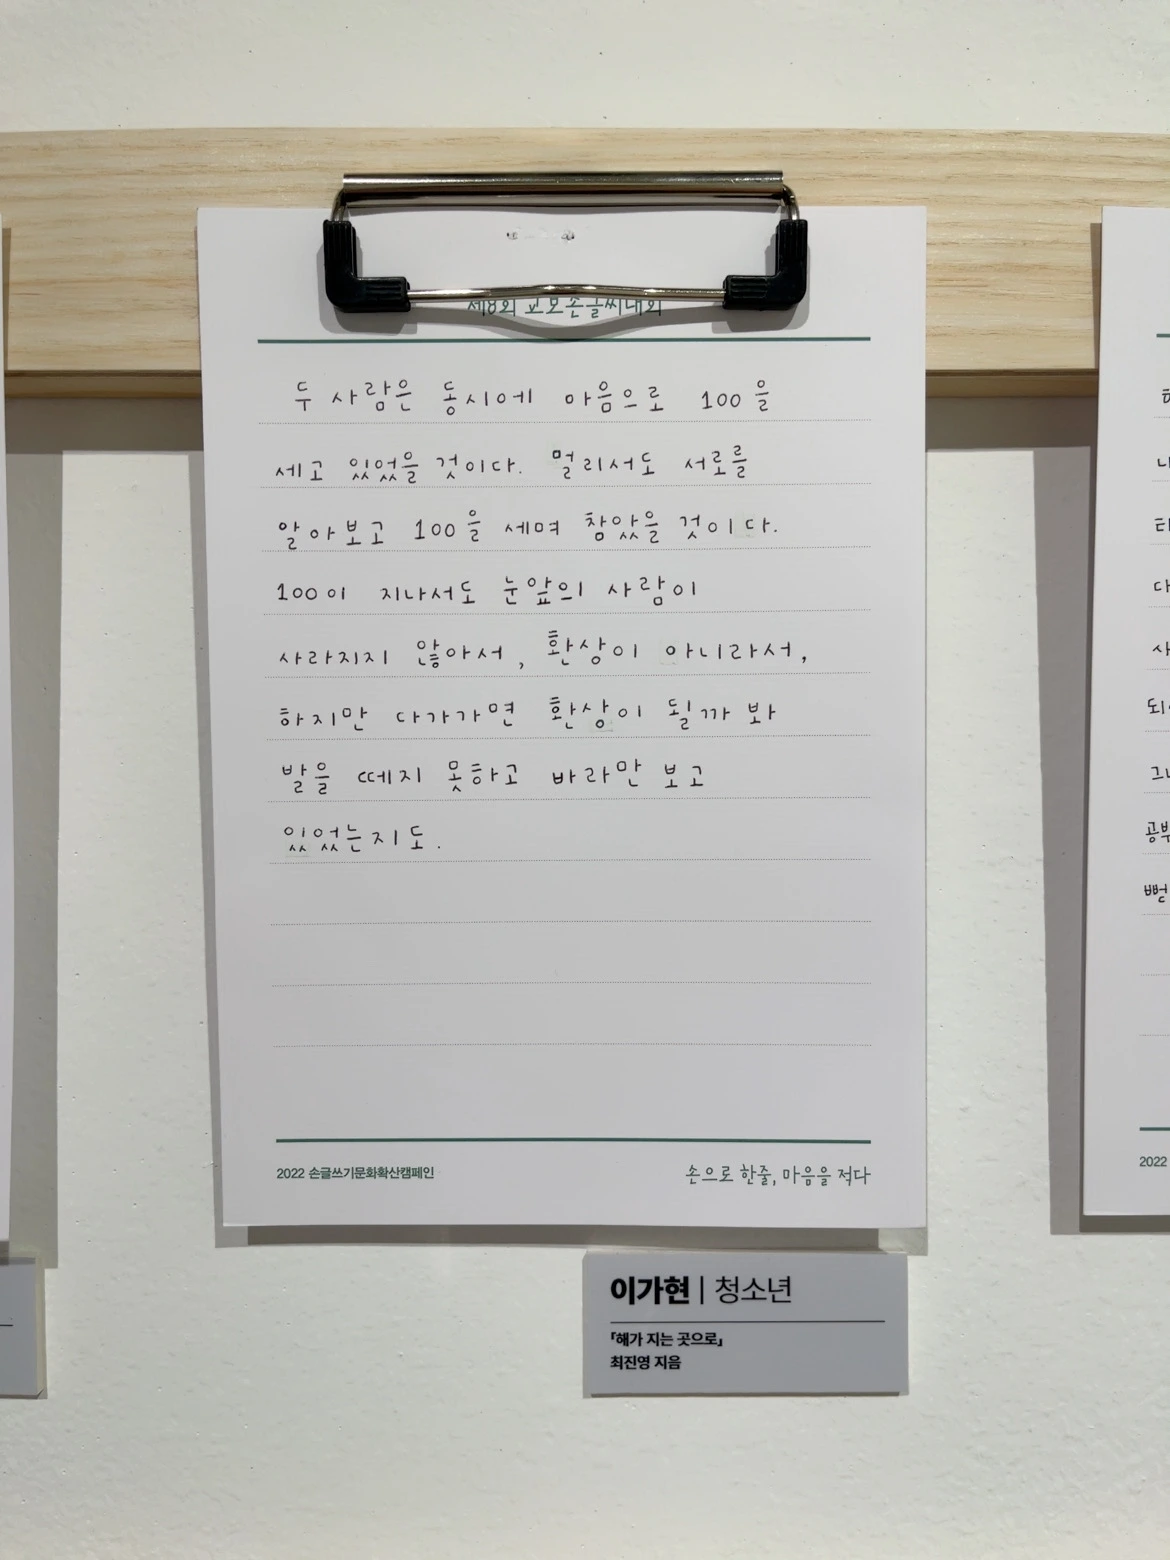 제8회 교보손글씨대회
두 사람은 동시에 마음으로 100을
세고 있었을 것이다. 멀리서도 서로를
알아보고 100을 세며 참았을 것이다.
100이 지나서도 눈앞의 사람이
사라지지 않아서, 환상이 아니라서,
하지만 다가가면 환상이 될까 봐
발을 떼지 못하고 바라만 보고
있었는지도.
2022 손글쓰기문화확산캠페인
손으로 한줄, 마음을 적다
이가현 | 청소년
「해가 지는 곳으로」
최진영 지음
2022